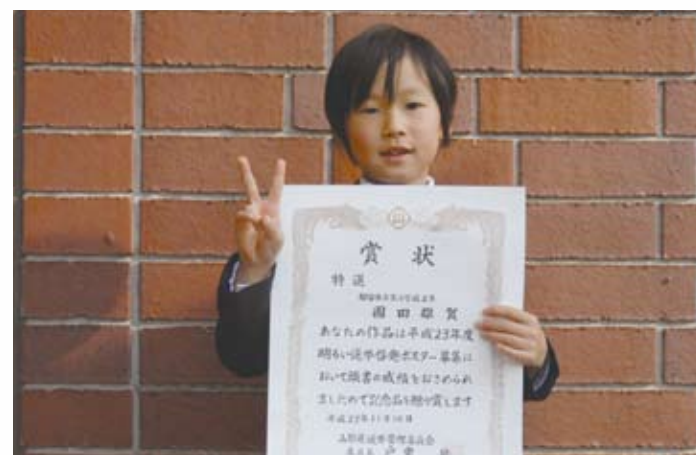 賞状
特選
園田
あなたの作品は平成23年度
明るい選挙啓発ポスター募集に
おいて頭書の成績をおさめられ
ましたので記念品を贈り賞します
平成23年11月
選挙管理委員会
委員長